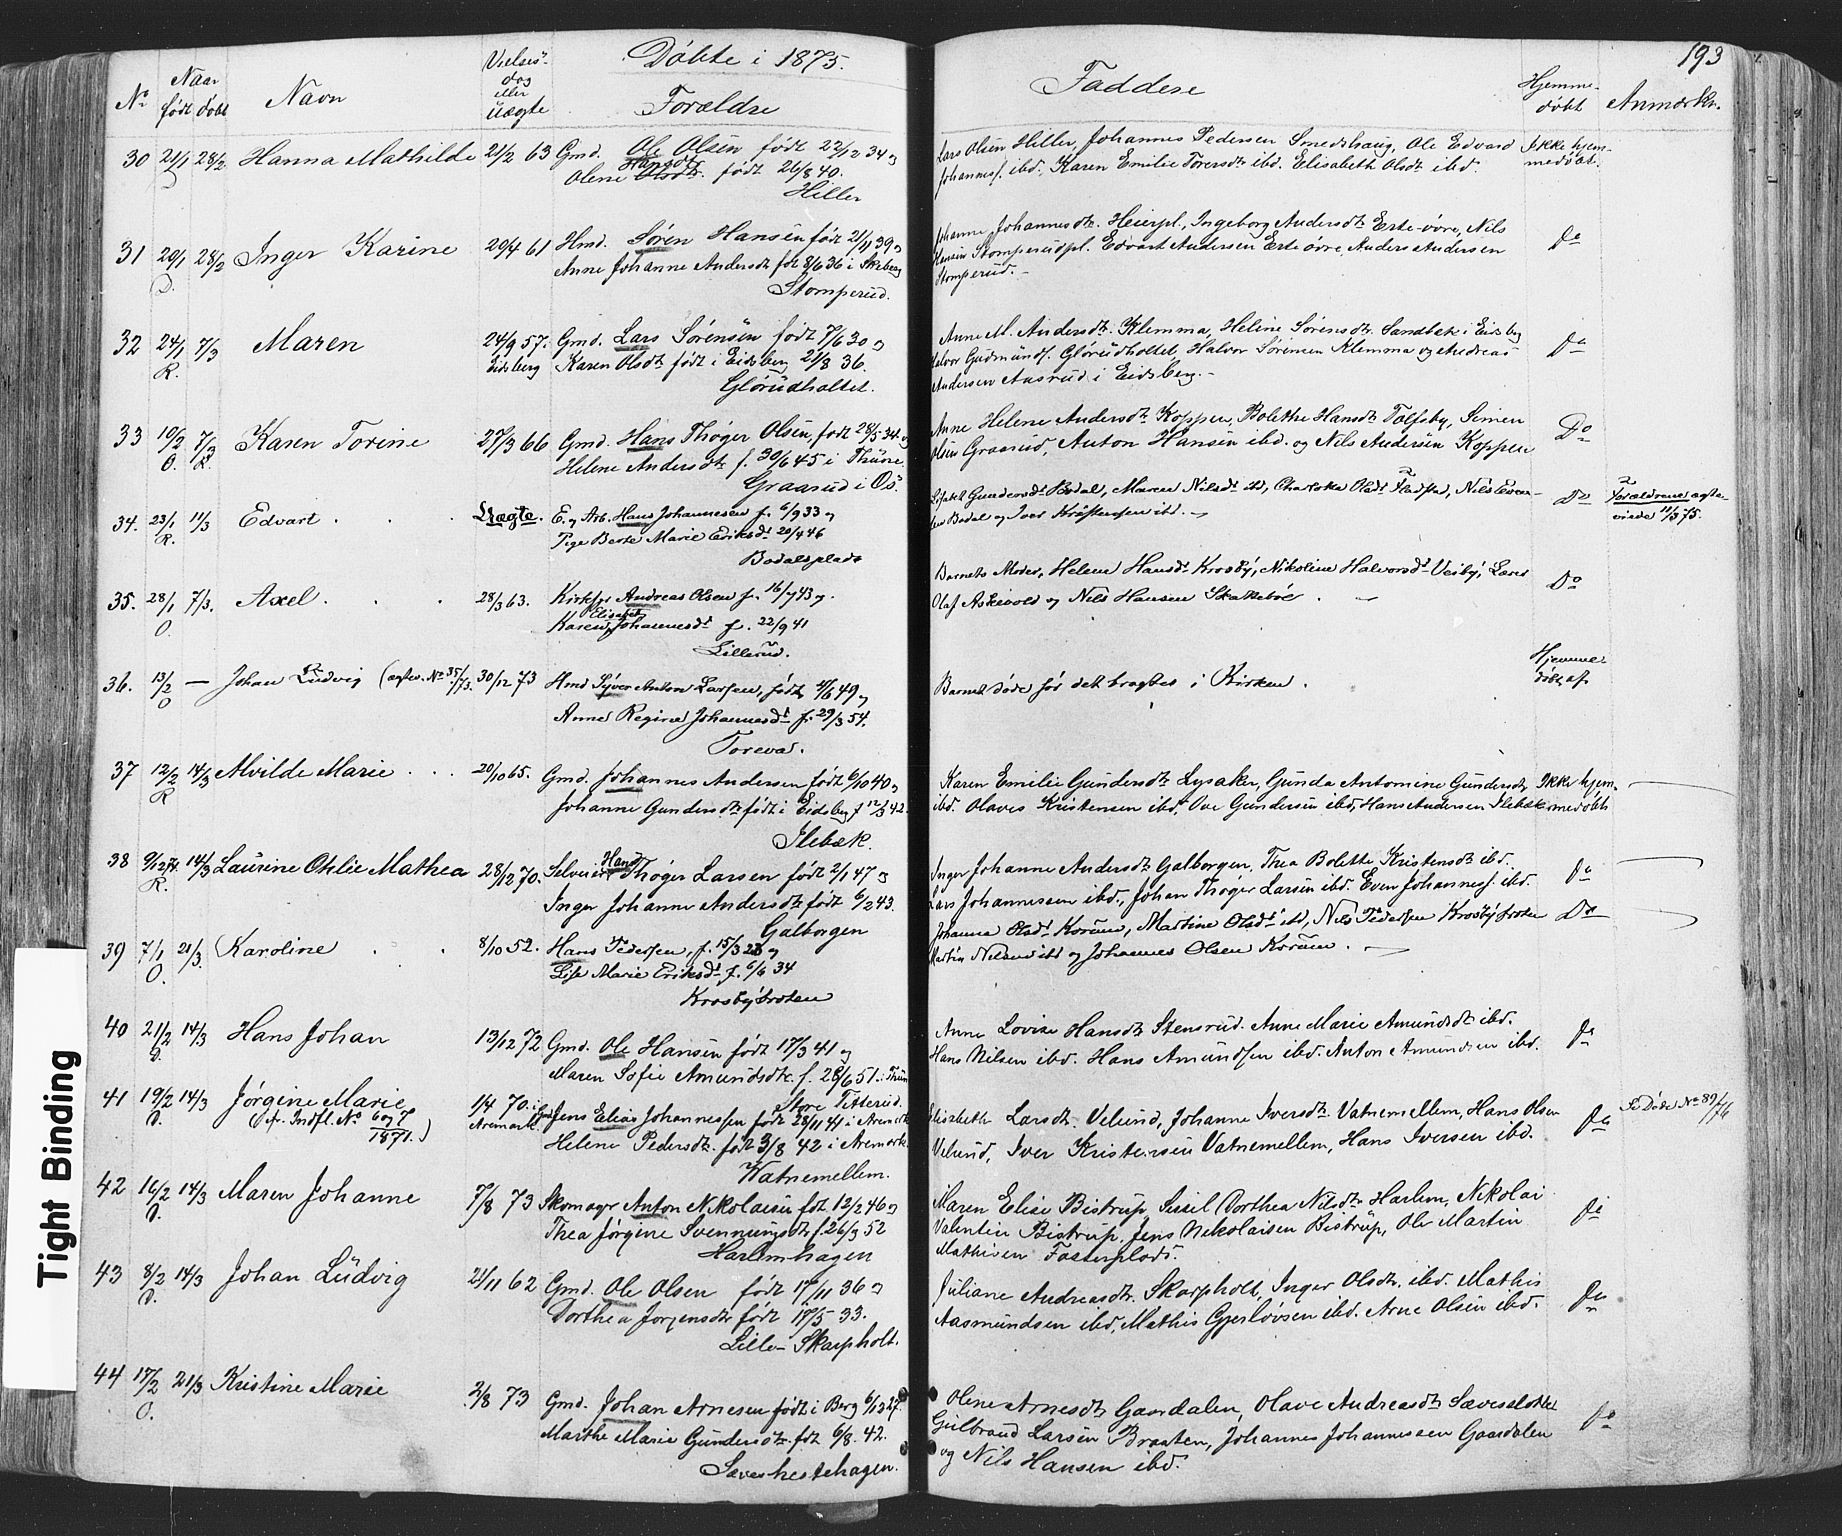 Døbte i 1875.
193
No
Naar
født døbt
Navn
Vielses-
dag
eller
Uægte
Forældre
Faddere
Hjemme-
døbt
Anmærkn.
30 21/1 28/2 Hanna Mathilde 21/2 63 Gmd. Ole Olsen født 22/12 34 og
Hansdt.
Olene Olsdt. født 26/8 40.
Hiller
Lars Olsen Hiller, Johannes Pedersen Smedshaug, Ole Edvard
Johannesf. ibd. Karen Emilie Torersdt. ibd. Elisabeth Olsdt. ibd.
Ikke hjem-
medøbt.
31 29/1 28/2 Inger Karine 29/4 61 Hmd. Søren Hansen født 21/11 39 og
D.
Anne Johanne Andersdt. føt 8/6 36 i Skiberg
Stomperud.
Johanne Johannesdt. Heierpl., Ingeborg Andersdt. Erte-øvre, Nils
Hansen Stomperudpl. Edvart Andersen Erte øvre, Anders Andersen
Stomperud.
Do
32 24/1 7/3 Maren 24/9 57. Gmd. Lars Sørensen født 7/6 30 og
R.
Eidsberg Karen Olsdt. født i Eidsberg 21/8 36.
Glørudholtet.
Anne M. Andersdt. Klemma, Helene Sørensdt. Sandbæk i Eidsberg
Halvor Gudmundf. Glørudholtet, Halvor Sørensen Klemma og Andreas
Andersen Aasrud i Eidsberg.
Do
33 10/2 7/3 Karen Torine 27/3 66 Gmd. Hans Thøger Olsen, født 28/5 34 og
O. R.
Helene Andersdt. f. 30/6 45 i Thune
Graarud i Os.
Anne Helene Andersdt. Kopper, Bolethe Hansdt. Tolfsby, Simen
Olsen Graarud, Anton Hansen ibd. og Nils Andersen Kopper
Do
34. 23/1 11/3 Edvart Uægte. E. og Arb. Hans Johannesen f. 6/9 33 og
R.
Pige Berte Marie Eriksdt. 20/4 46
Bodalsplads
Lisabet Gundersdt. Bodal, Maren Nilsdt. ibd, Charlotte Olsdt. Fladstad, Nils Even-
sen Bodal og Iver Kristensen ibd.
Do
Forældrene ægte-
viede 11/3 75.
35. 28/1 7/3. Axel. 28/3 63. Kirkesgr Andreas Olsen f. 16/7 43 og
O.
Elisabet
Karen Johannesdt. f. 22/9 41
Lillerud.
Barnets Moder, Helene Hansdt. Krosby, Nikoline Halvorsdt. Vesby, Lærer
Olaf Askevold og Nils Hansen Skakkebøe.
Do
36. 13/2 — Johan Ludvig (ægtev. No 35/73. 30/12 73 Hmd Syver Anton Larsen, født 4/6 49 og
O
Anne Regine Johannesdt. f. 29/3 54.
Torevad.
Barnet døde før det bragtes i Kirken.
Hjemme-
døbt af
37 12/2 14/3 Alvilde Marie 20/10 65. Gmd. Johannes Andersen født 6/10 40 og
R
Johanne Gundersdt. født i Eidsberg 12/3 42.
Ilebæk.
Karen Emilie Gundersdt. Lysaker, Gunda Antomine Gundersdt.
ibd. Olaves Kristensen ibd, Ove Gundersen ibd, Hans Andersen Ilebæk
Ikke hjem-
medøbt
38 9/12 74 14/3 Laurine Othlie Mathea 28/12 70. Selveier Hans Thøger Larsen født 2/1 47 og
R.
Inger Johanne Andersdt. født 6/2 43.
Galborgen
Inger Johanne Andersdt. Galborgen, Thea Bolette Kristensdt. ibd.
Lars Johannessen ibd., Johan Thøger Larsen ibd. Even Johannesf. ibd.
Do
39 7/1 21/3. Karoline 8/10 52. Hans Pedersen, f. 15/3 23 og
O.
Lise Marie Eriksdt. f. 6/6 34
Krosbybroten
Johanna Olsdt. Korum, Martine Olsdt. ibd, Nils Pedersen Krosbybroten
Martin Nilsen ibd og Johannes Olsen Korum.
Do
40 21/2 14/3 Hans Johan 13/12 72 Gmd. Ole Hansen født 17/3 41 og
O.
Maren Sofie Amundsdt. f. 26/6 51 i Thune
Store Titterud.
Anne Lovise Hansdt. Stensrud. Anne Marie Amundsdt. ibd.
Hans Nilsen ibd. Hans Amundsen ibd. Anton Amundsen ibd.
Do
41 19/2 14/3 Jørgine Marie 1/4 70. i Jens Elias Johannessen født 28/11 41 i Aremark
O.
(fr. Indfl. No 6 og 7
1871.)
Aremark
Helene Pedersdt. født 3/8 42 i Aremark
Vatnemellem.
Elisabeth Larsdt. Velund, Johanne Iversdt. Vatnemellem, Hans Olsen
Velund, Iver Kristensen Vatnemellem, Hans Iversen ibd.
Do
Se Døde No 89/76
42 16/2 14/3 Maren Johanne 7/8 73 Skomager Anton Nikolaisen føt 12/2 46 og
O.
Thea Jørgine Svenningsdt. f. 26/3 52
Harlemhagen
Maren Elise Bistrup, Sissil Dorthea Nilsdt. Harlem, Nikolai
Valentin Bistrup, Jens Nikolaisen Bistrup, Ole Martin
Mathisen Fosterplads.
Do
43 8/2 14/3 Johan Ludvig 21/11 62 Gmd. Ole Olsen født 17/11 36 og
O.
Dorthea Jorgensdt. født 17/5 33.
Lille-Skarpholt.
Juliane Andreasdt. Skarpholt, Inger Olsdt. ibd. Mathis
Aasmundsen ibd, Mathis Gjersløvsen ibd. Arne Olsen ibd.
Do
44 17/2 21/3 Kristine Marie 2/8 73 Gmd. Johan Arnesen født i Berg 6/1 327.
O.
Marthe Marie Gundersdt. føt 6/8. 42.
Sæveshestehagen.
Olene Arnesdt. Gaardalen, Olave Andreasdt. Sæveslottet
Gulbrand Larsen Braaten, Johannes Johannessen Gaardalen
og Nils Hansen ibd.
Do
Tight Binding